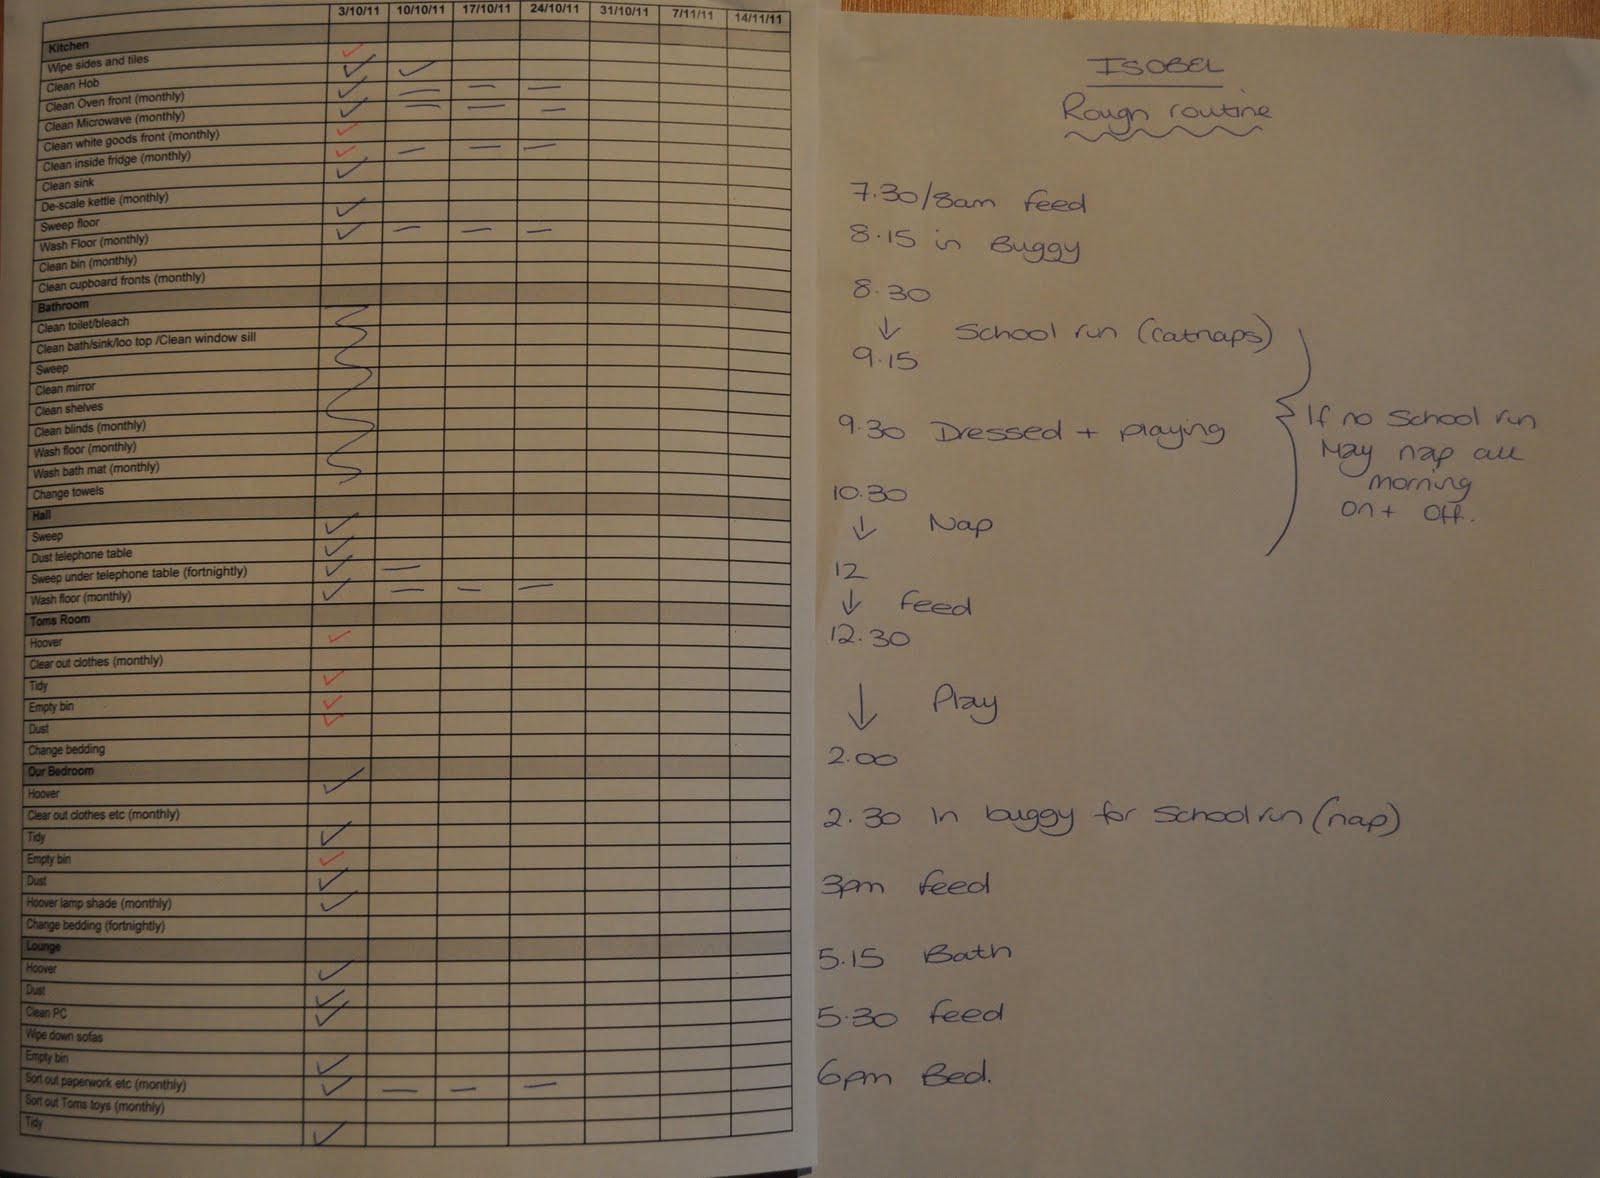 3/10/11 10/10/11 17/10/11 24/10/11 31/10/11 7/11/11 14/11/11
Kitchen
Wipe sides and tiles
Clean Hob
Clean Oven front (monthly)
Clean Microwave (monthly)
Clean white goods front (monthly)
Clean inside fridge (monthly)
Clean sink
De-scale kettle (monthly)
Sweep floor
Wash Floor (monthly)
Clean bin (monthly)
Clean cupboard fronts (monthly)
Bathroom
Clean toilet/bleach
Clean bath/sink/loo top /Clean window sill
Sweep
Clean mirror
Clean shelves
Clean blinds (monthly)
Wash floor (monthly)
Wash bath mat (monthly)
Change towels
Hall
Sweep
Dust telephone table
Sweep under telephone table (fortnightly)
Wash floor (monthly)
Toms Room
Hoover
Clear out clothes (monthly)
Tidy
Empty bin
Dust
Change bedding
Our Bedroom
Hoover
Clear out clothes etc (monthly)
Tidy
Empty bin
Dust
Hoover lamp shade (monthly)
Change bedding (fortnightly)
Lounge
Hoover
Dust
Clean PC
Wipe down sofas
Empty bin
Sort out paperwork etc (monthly)
Sort out Toms toys (monthly)
Tidy
ISOBEL
Rough routine
7.30/8am feed
8.15 in Buggy
8.30
↓ School run (catnaps)
9.15
9.30 Dressed + playing
If no School run
May nap all
morning
on + off.
10.30
↓ Nap
12
↓ feed
12.30
↓ Play
2.00
2.30 In buggy for School run (nap)
3pm feed
5.15 Bath
5.30 feed
6pm Bed.